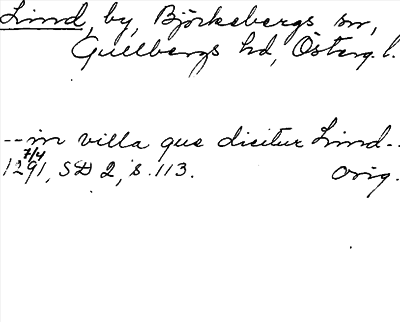 Lind, by, Björkebergs sn,
Gullbergs hd, Österg.l.
--in villa que dicitur Lind--
7/4
1291, SD 2, s. 113. Orig.